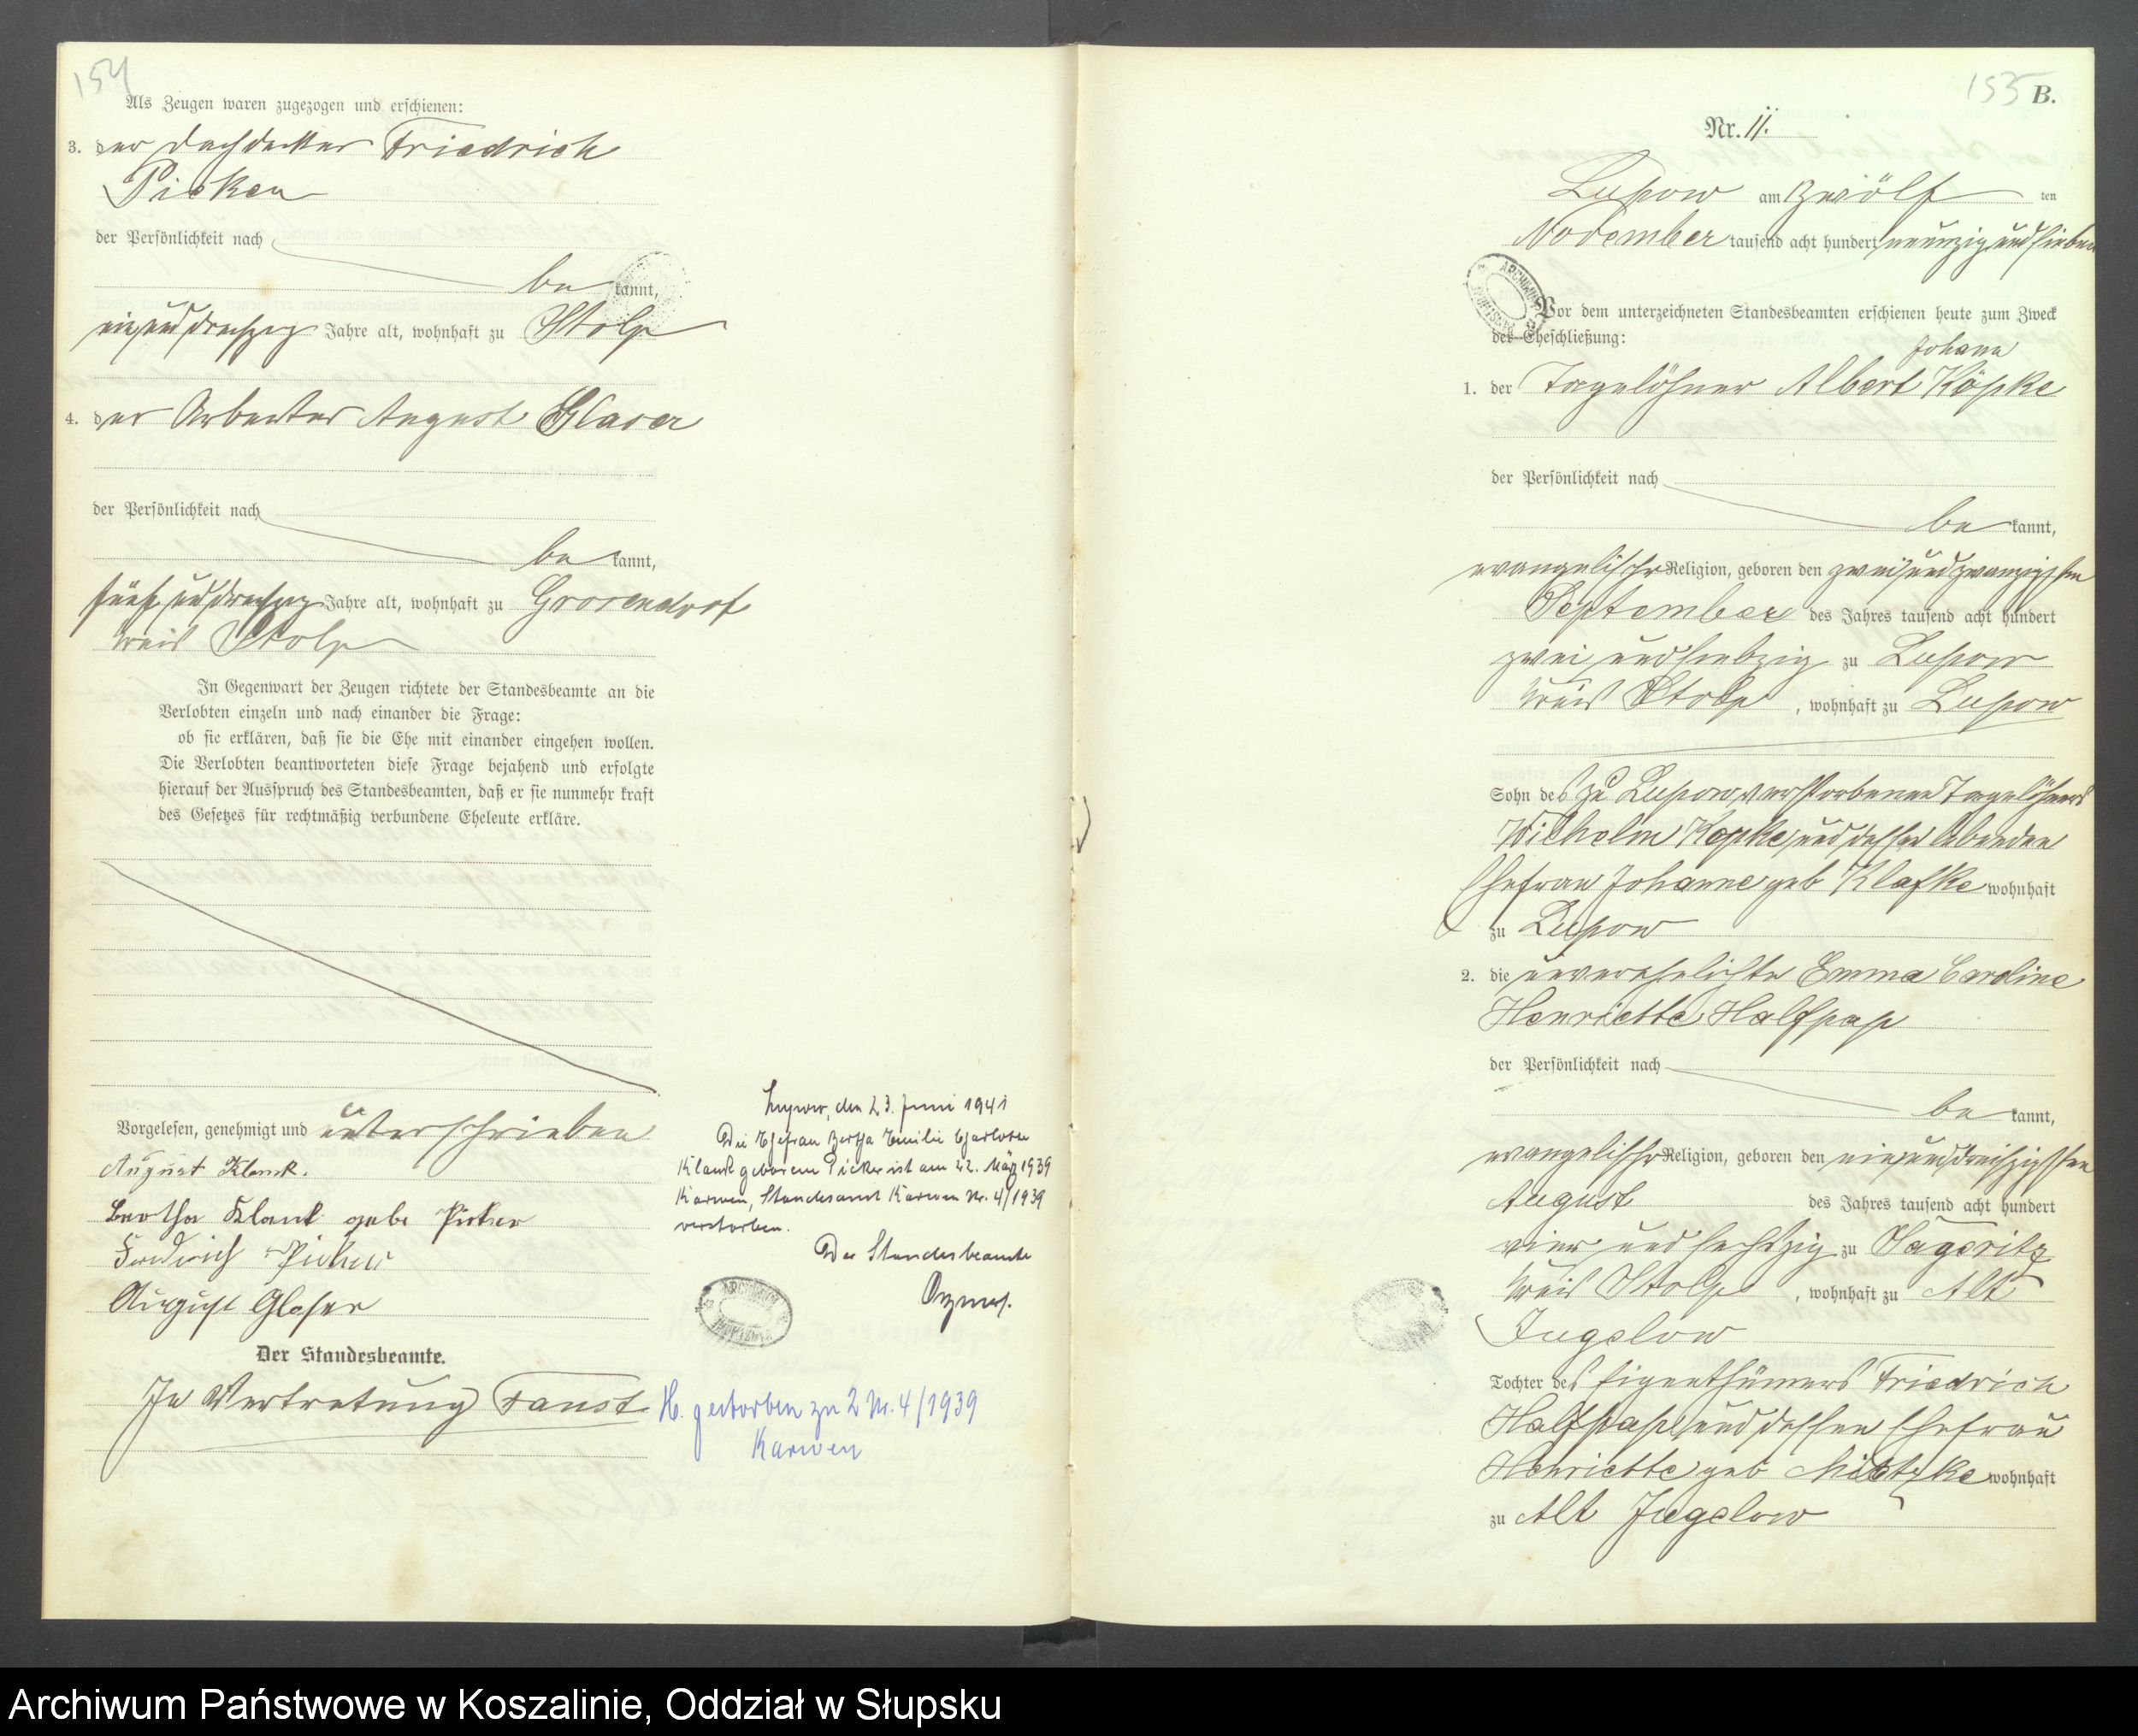 154
Als Zeugen waren zugezogen und erschienen:
3. der Dachdecker Friedrich
Picker
der Persönlichkeit nach
be kannt,
einunddreißig Jahre alt, wohnhaft zu Stolp
4. der Arbeiter August Glaser
der Persönlichkeit nach
be kannt,
fünfunddreißig Jahre alt, wohnhaft zu Grossendorf
Kreis Stolp
In Gegenwart der Zeugen richtete der Standesbeamte an die
Verlobten einzeln und nach einander die Frage:
ob sie erklären, daß sie die Ehe mit einander eingehen wollen.
Die Verlobten beantworteten diese Frage bejahend und erfolgte
hierauf der Ausspruch des Standesbeamten, daß er sie nunmehr kraft
des Gesetzes für rechtmäßig verbundene Eheleute erkläre.
Vorgelesen, genehmigt und unterschrieben
August Klank.
Bertha Klank geb. Picker
Friedrich Picker
August Glaser
Der Standesbeamte.
In Vertretung Faust
Lupow, den 23. Juni 1941
Die Ehefrau Bertha Emilie Charlotte
Klank geborene Picker ist am 22. März 1939
Karwen, Standesamt Karwen Nr. 4/1939
verstorben.
Der Standesbeamte
H. gestorben zu 2 Nr. 4/1939
Karwen
155 B.
Nr. 11.
Lupow am zwölf ten
November tausend acht hundert neunzig und sieben
Vor dem unterzeichneten Standesbeamten erschienen heute zum Zweck
der Eheschließung:
Johann
1. der Tagelöhner Albert Köpke
der Persönlichkeit nach
be kannt,
evangelischer Religion, geboren den zweiundzwanzigsten
September des Jahres tausend acht hundert
zwei und siebzig zu Lupow
Kreis Stolp, wohnhaft zu Lupow
Sohn des zu Lupow verstorbenen Tagelöhners
Wilhelm Köpke und dessen lebenden
Ehefrau Johanne geb Klafke wohnhaft
zu Lupow
2. die unverehelichte Emma Caroline
Henriette Halfpap
der Persönlichkeit nach
be kannt,
evangelischer Religion, geboren den einunddreißigsten
August des Jahres tausend acht hundert
vier und sechszig zu Sageritz
Kreis Stolp, wohnhaft zu Alt
Jugelow
Tochter des Eigenthümers Friedrich
Halfpap und dessen Ehefrau
Henriette geb Mietzke wohnhaft
zu Alt Jugelow
Archiwum Państwowe w Koszalinie, Oddział w Słupsku